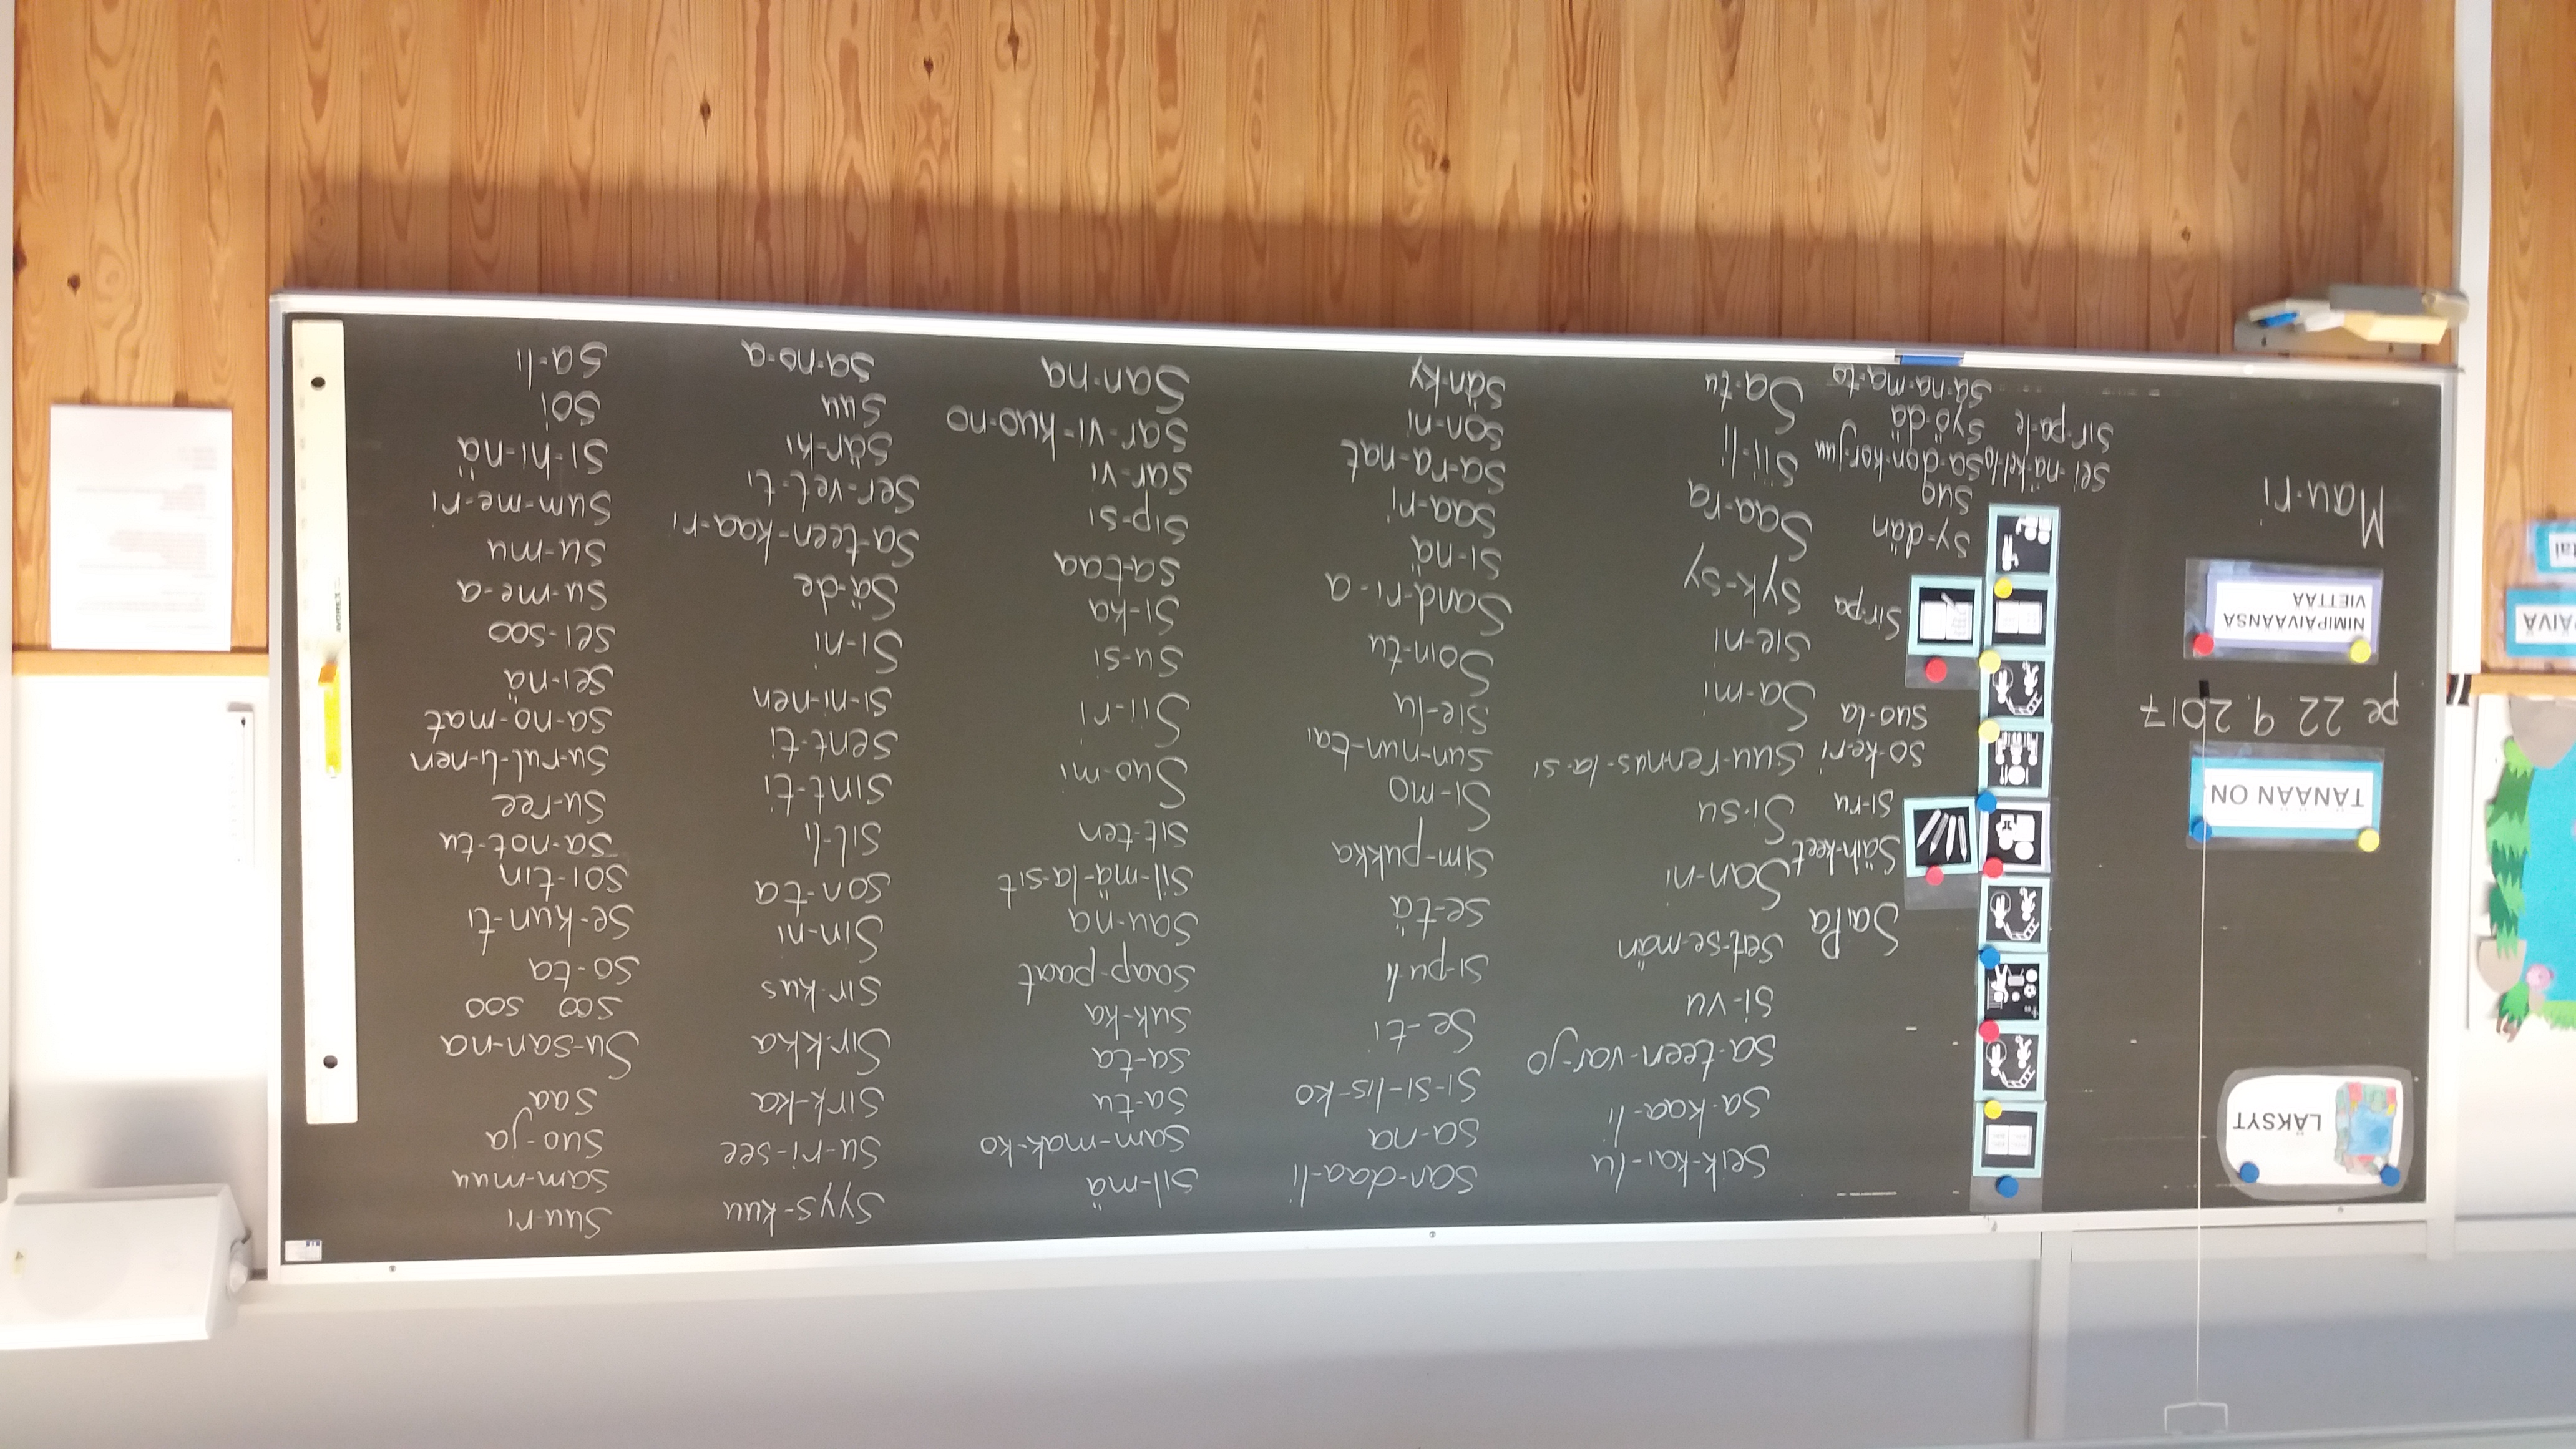 LÄKSYT
TÄNÄÄN ON
pe 22.9.2017
NIMIPÄIVÄÄNSÄ
VIETTÄÄ
Mau-ri
SaiPa
Säih-keet
si-ru
so-ke-ri
suo-la
Sir-pa
sy-dän
suo
sei-nä-kel-lo
sa-don-kor-juu
sir-pa-le
syö-dä
sa-na-ma-to
Seik-kai-lu
sa-kaa-li
sa-teen-var-jo
si-vu
seit-se-män
San-ni
Si-su
suu-rennus-la-si
Sa-mi
sie-ni
syk-sy
Saa-ra
sii-li
Sa-tu
san-daa-li
sa-na
si-si-lis-ko
se-ti
si-pu-li
se-tä
sim-pukka
Si-mo
sun-nun-tai
sie-lu
Soin-tu
Sand-ri-a
si-nä
saa-ri
sa-ra-nat
son-ni
sän-ky
sil-mä
sam-mak-ko
sa-tu
sa-ta
suk-ka
saap-paat
sau-na
sil-mä-la-sit
sit-ten
Suo-mi
Sii-ri
su-si
si-ka
sa-taa
sip-si
sar-vi
sar-vi-kuo-no
San-na
syys-kuu
su-ri-see
sirk-ka
Sir-kka
sir-kus
Sin-ni
son-ta
sil-li
sint-ti
sent-ti
si-ni-nen
Si-ni
sä-de
sa-teen-kaa-ri
ser-vet-ti
sär-ki
suu
sa-no-a
suu-ri
sam-muu
suo-ja
saa
Su-san-na
soo soo
so-ta
se-kun-ti
soi-tin
sa-not-tu
su-ree
su-rul-li-nen
sa-no-mat
sei-nä
sei-soo
su-me-a
su-mu
sum-me-ri
si-hi-nä
soi
sa-li